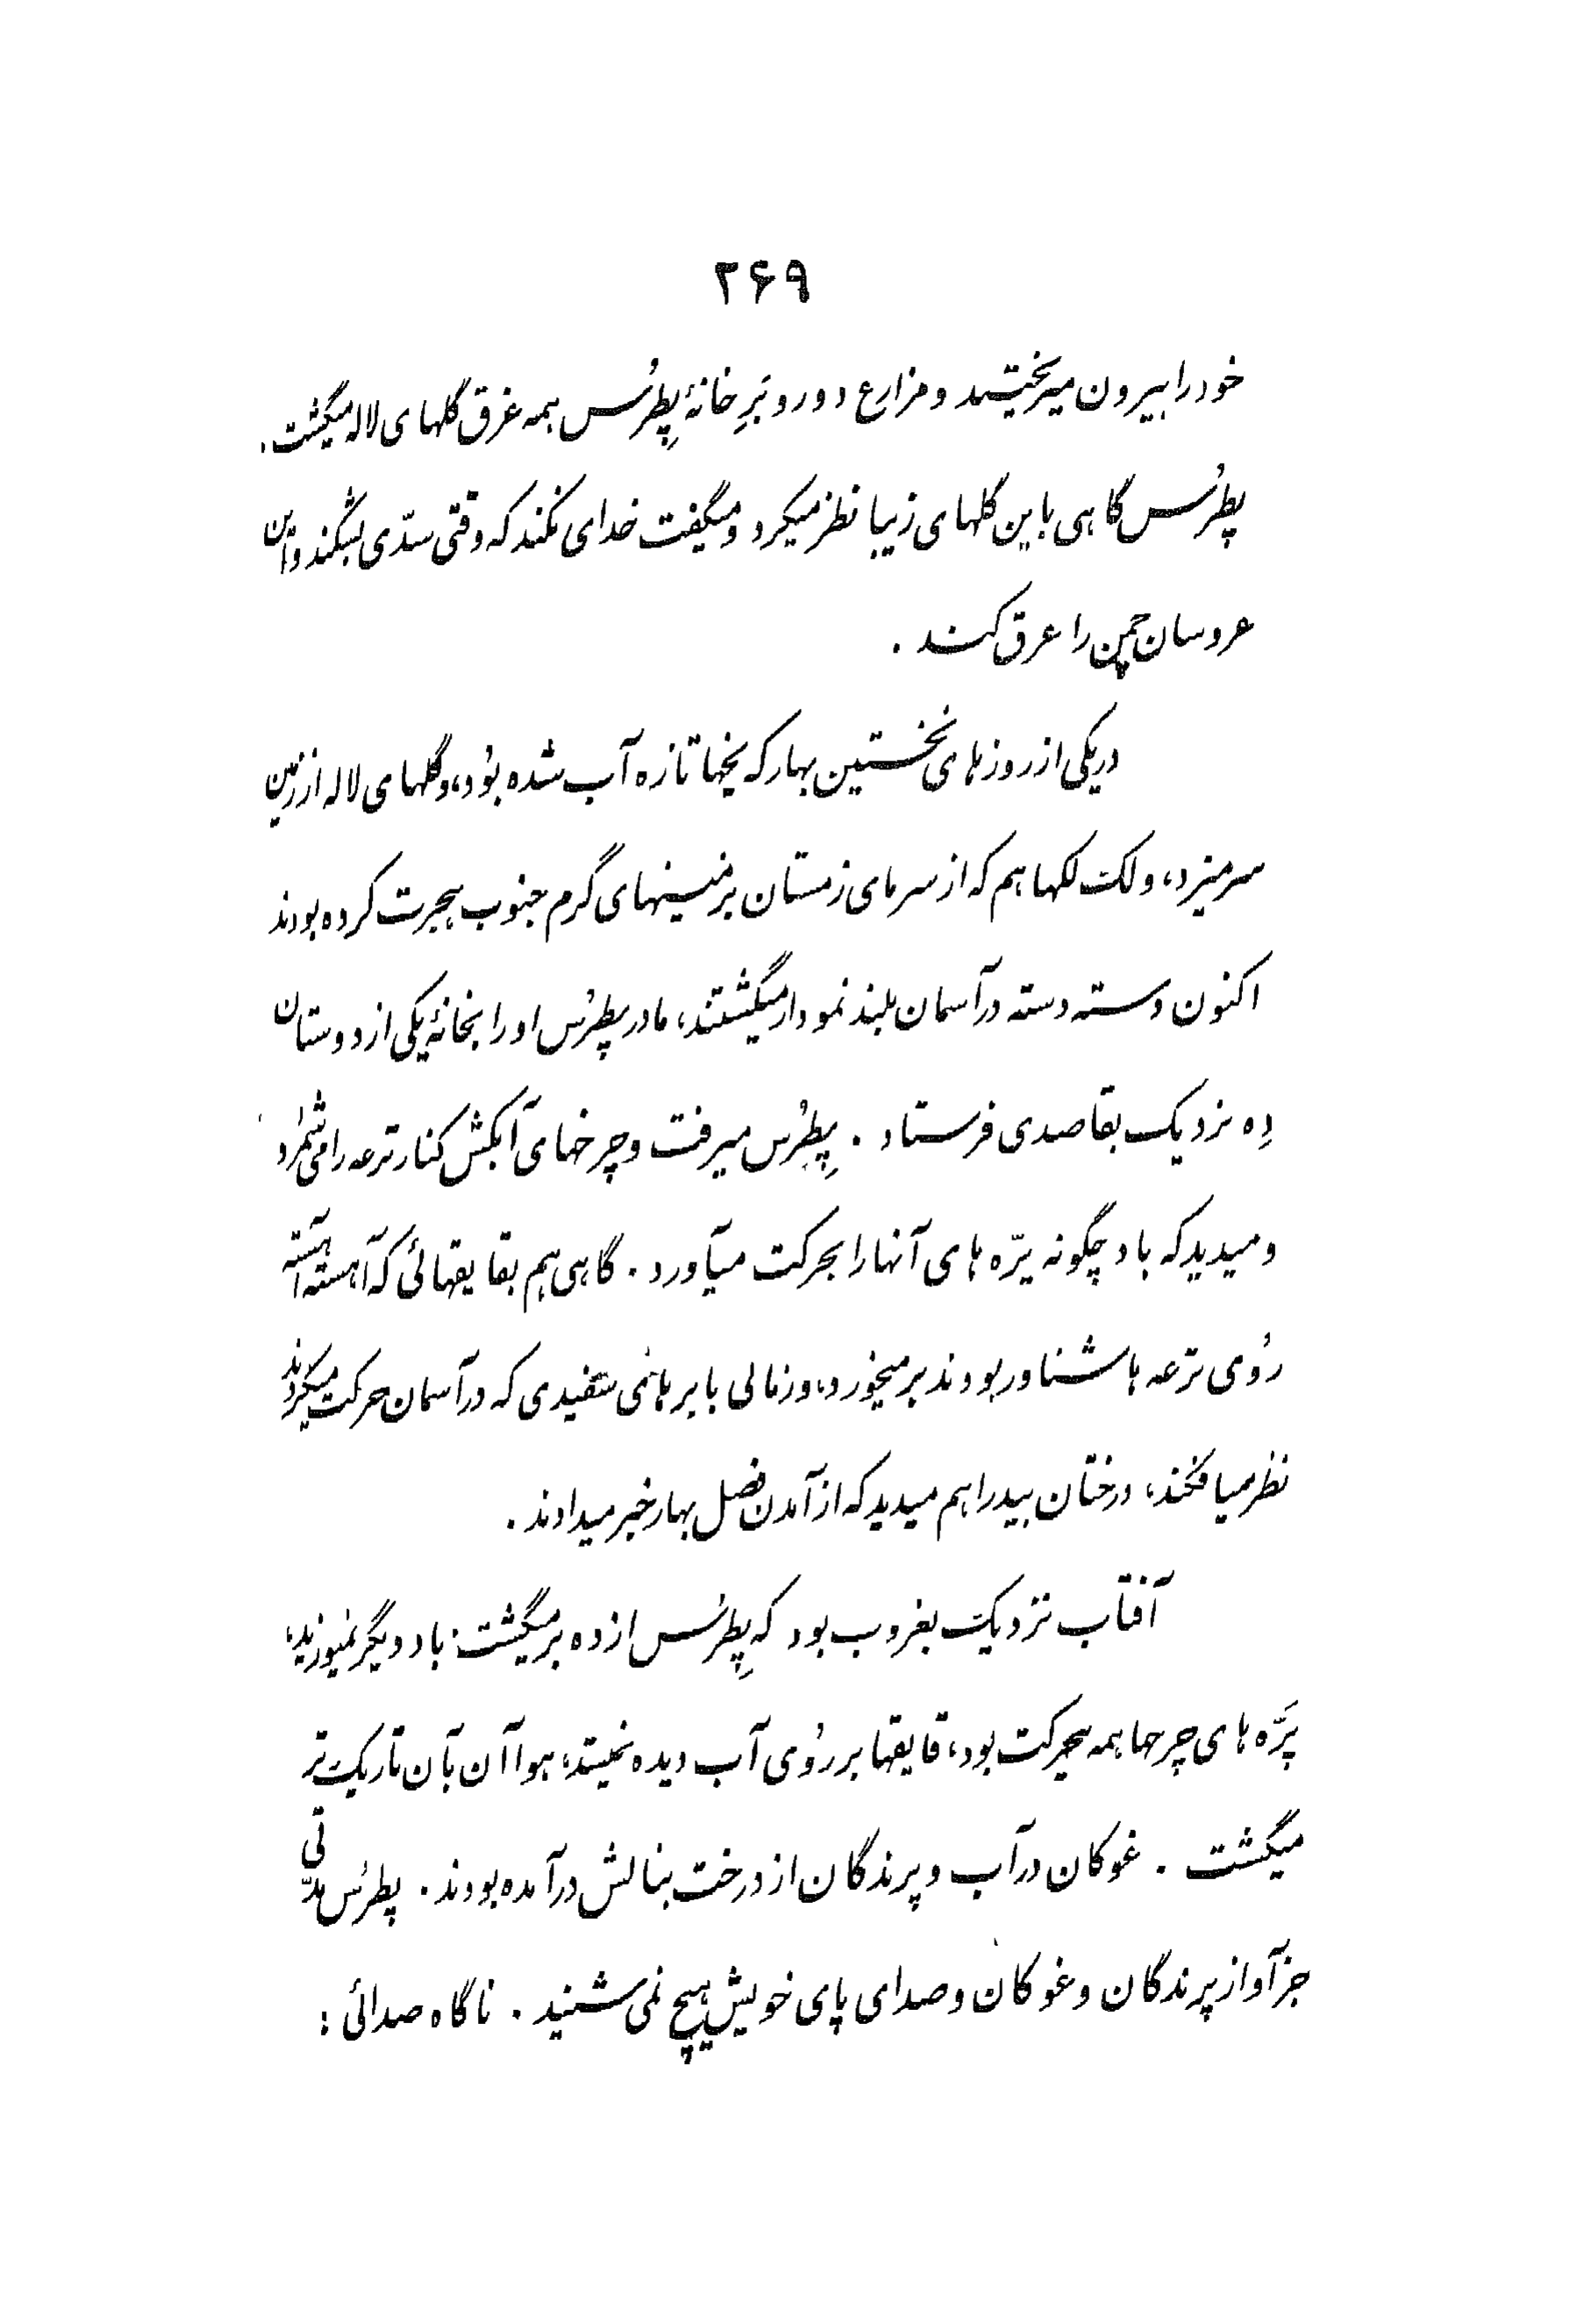 ۲۶۹
خود را بیرون میریختند و مزارع دور و بَرِ خانهٔ پِطرُس همه غرق گلهای لاله میگشت.
پطرُس گاهی باین گلهای زیبا نظر میکرد و میگفت خدای نکند که وقتی سدّی بشکند و این
عروسان چمن را غرق کند .
در یکی از روزهای نخستین بهار که یخها تازه آب شده بوُد، و گلهای لاله از زمین
سر میزد، و لک لکها هم که از سرمای زمستان بزمینهای گرم جنوب هجرت کرده بودند
اکنون دسته دسته در آسمان بلند نمودار میگشتند، مادر پطرُس او را بخانهٔ یکی از دوستان
دِه نزدیک بقاصدی فرستاد . پِطرُس میرفت و چرخهای آبکش کنار ترعه را می شمُرد
و میدید که باد چگونه پرّه های آنها را بحرکت میآورد . گاهی هم بقایقهائی که آهسته آهسته
روُی ترعه ها شناور بودند بر میخورد، و زمانی بابرهای سفیدی که در آسمان حرکت میکردند
نظر میافکند، درختان بید را هم میدید که از آمدن فصل بهار خبر میدادند .
آفتاب نزدیک بغروب بود که پِطرُس از ده بر میگشت . باد دیگر نمیوزید،
پَرّه های چرخها همه بیحرکت بود، قایقها بر روُی آب دیده نمیشد، هوا آن بآن تاریک تر
میگشت . غوکان در آب و پرندگان از درخت بنالش درآمده بودند . پطرُس مدّتی
جز آواز پرندگان و غوکان و صدای پای خویش هیچ نمی شنید . ناگاه صدائی :